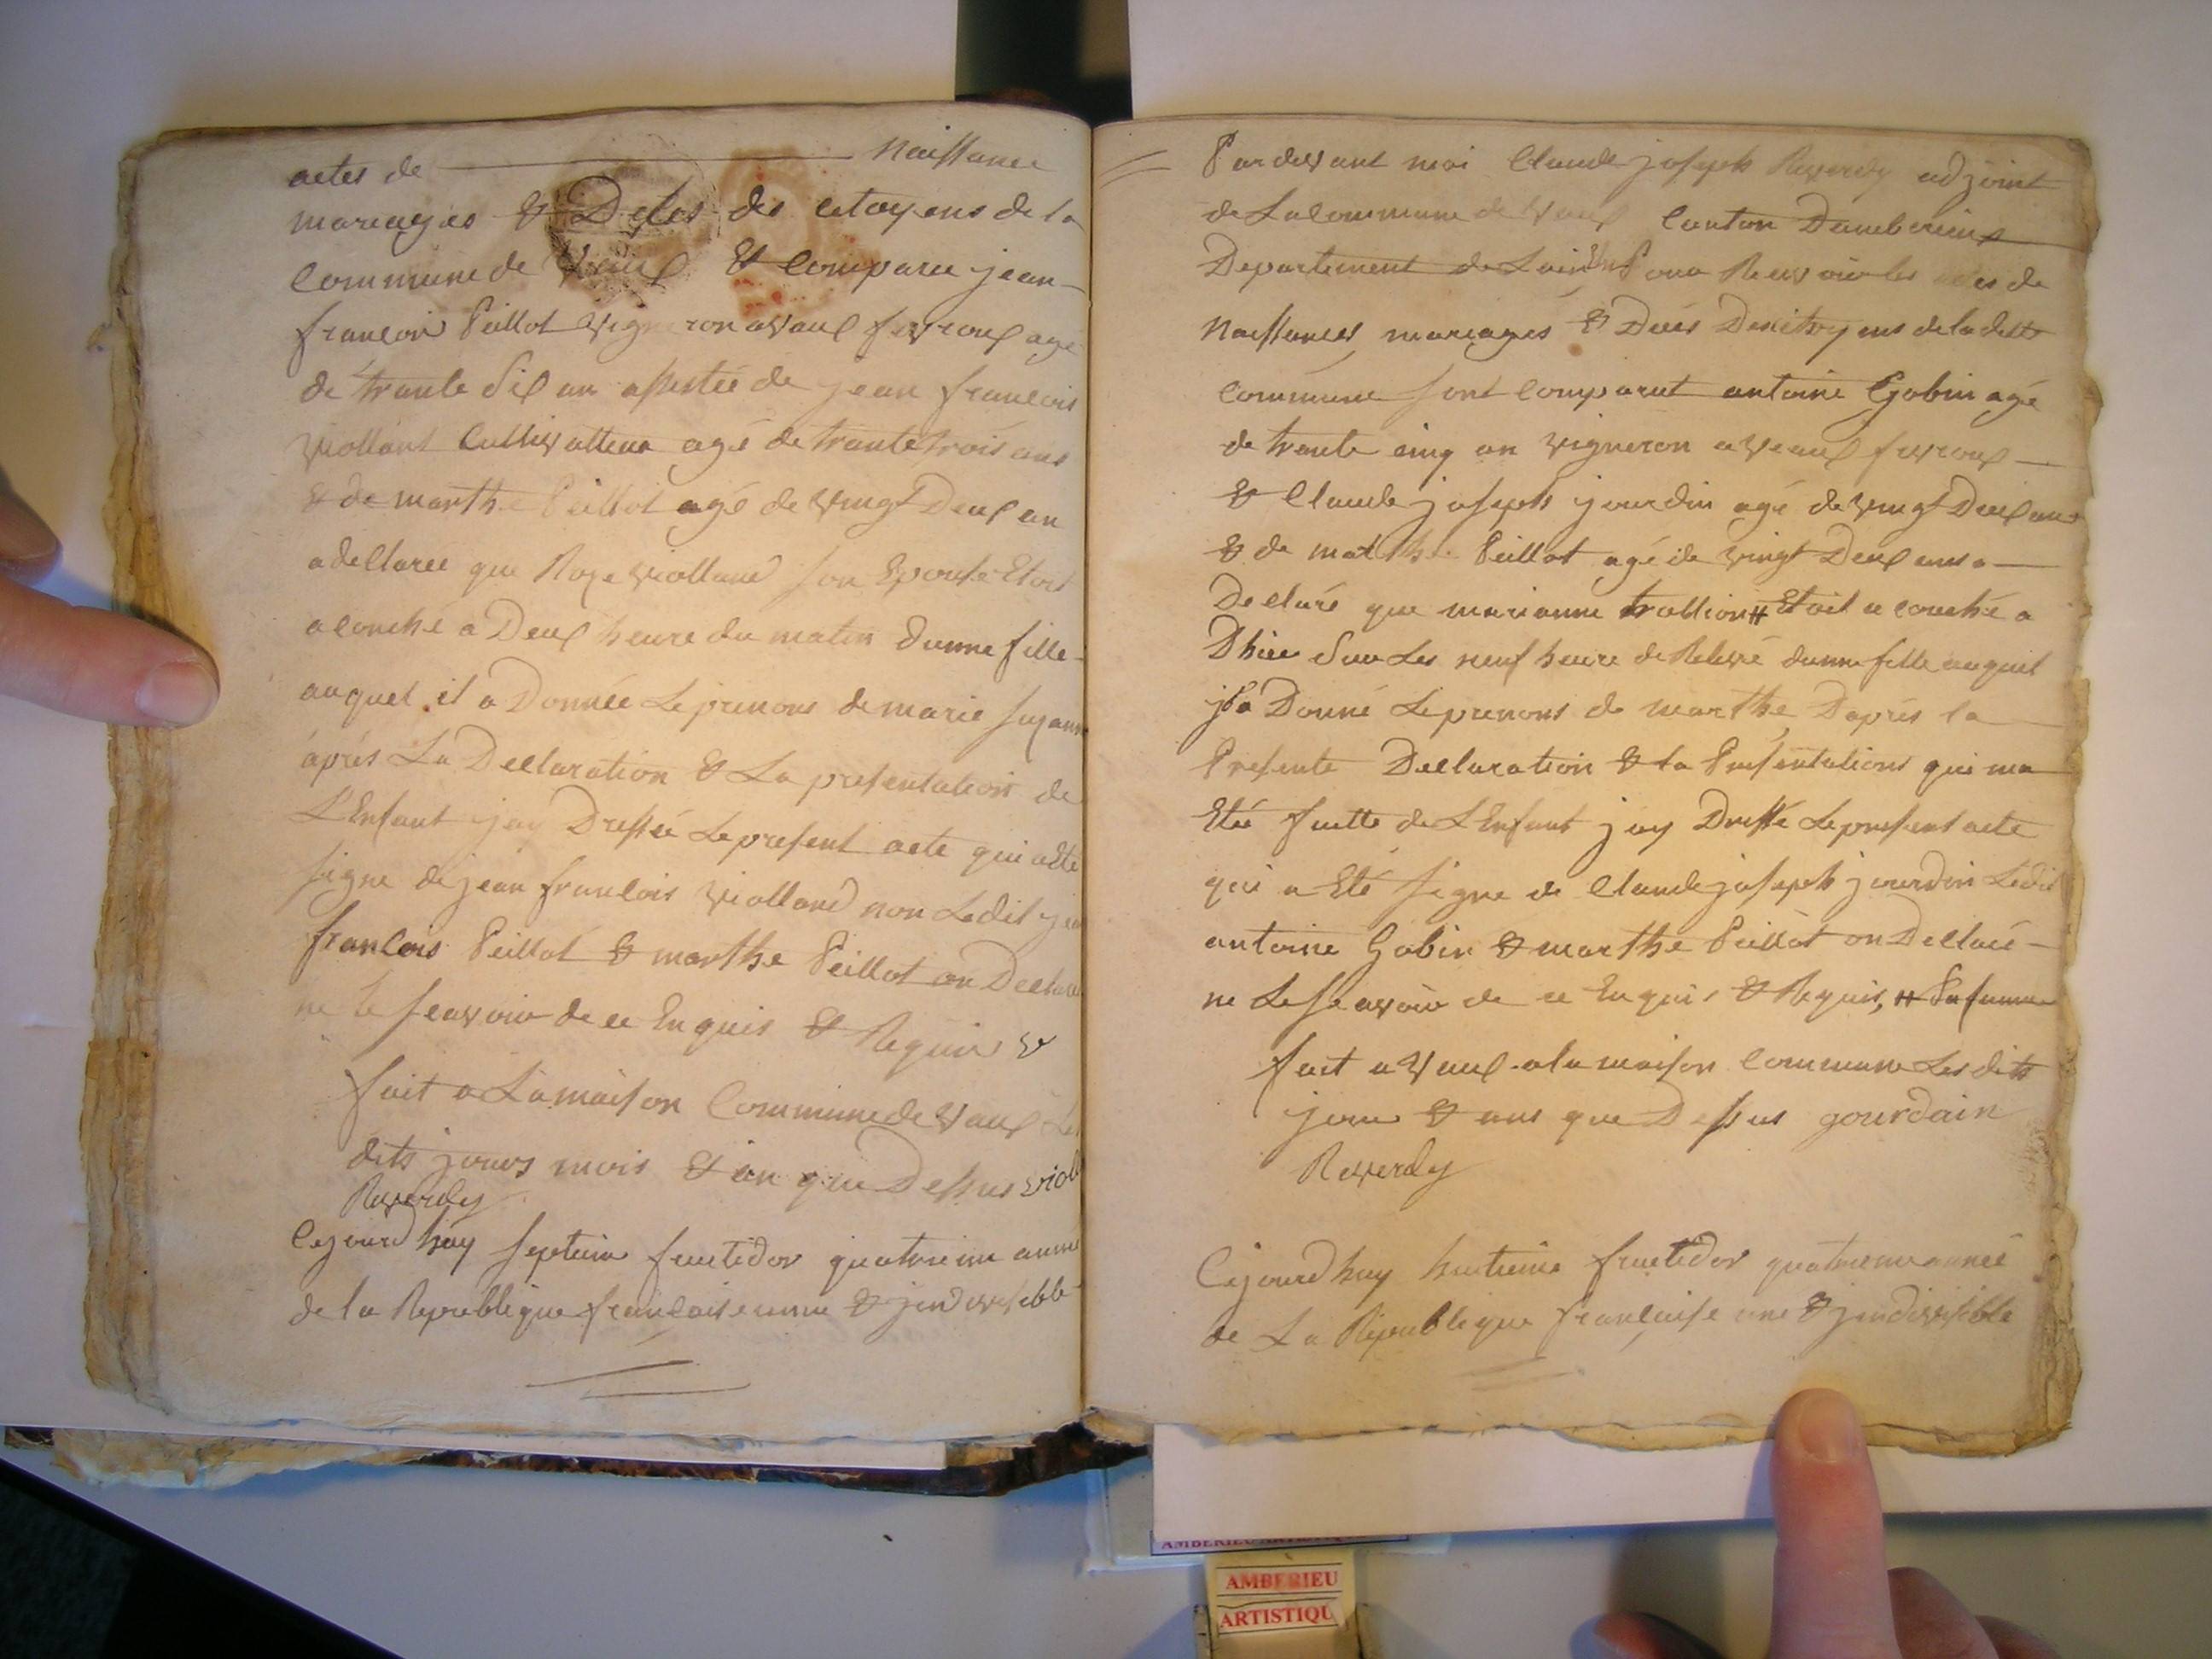 actes de Naissance
mariages & Deces des citoyens de la
Commune de Vaux Et Comparu jean
francois Peillot vigneron a Vaux fevroux agé
de trante Six an assistée de jean francois
viollant Cultivatteur agé de trante trois ans
& de marthe Peillot agé de vingt Deux an
a declarée que Roze violland son Epouse Etoit
a couché a Deux heure du matin dunne fille
auquel il a Donnée Le prenons de marie suzann
après La Declaration & La presentation de
L'Enfant jay Dressée Le present acte qui a Eté
signe de jean francois violland non Ledit jea
francois Peillot & marthe Peillot on Declaré
ne le scavoir de ce Enquis & Requis
fait a La maison Commune de Vaux Les
dits jours mois & an que Dessus viol
Reverdy
Cejourdhuy septieme fructidor quatrieme année
de la Republique francaise unne & jndivisible
Pardevant moi Claude joseph Reverdy adjoint
de La Commune de Vaux Canton Damberieux
Departement de Lain Pour Recevoir les actes de
Naissances mariages & Deces Des citoyens de la ditte
Commune sont Comparut antoine Gobin agé
de trante cinq an vigneron a Veaux fevroux
& Claude joseph jourdin agé de vingt Deux ans
& de matthe Peillot agé de vingt Deux ans a
Declaré que marianne trollion # Etoit a couché a
Dhier Sur Les neuf heure de Relevé dunne fille auquel
jl a Donné Le prenons de marthe Daprés la
Presente Declaration & la Presentations qui ma
Etée faitte de L Enfant jay Dressé Le present acte
qui a Eté signe de Claude joseph jourdin Ledit
antoine Gobin & marthe Peillot on Declaré
ne Le scavoir de ce Enquis & Requis, # Sa famme
fait a Vaux a la maison Commune Les dits
jour & ans que Dessus gourdain
Reverdy
Cejourdhuy huitieme fructidor quatrieme année
de La Republique francaise une & jndivisible
AMBERIEU ARTISTIQUE
AMBERIEU
ARTISTIQU